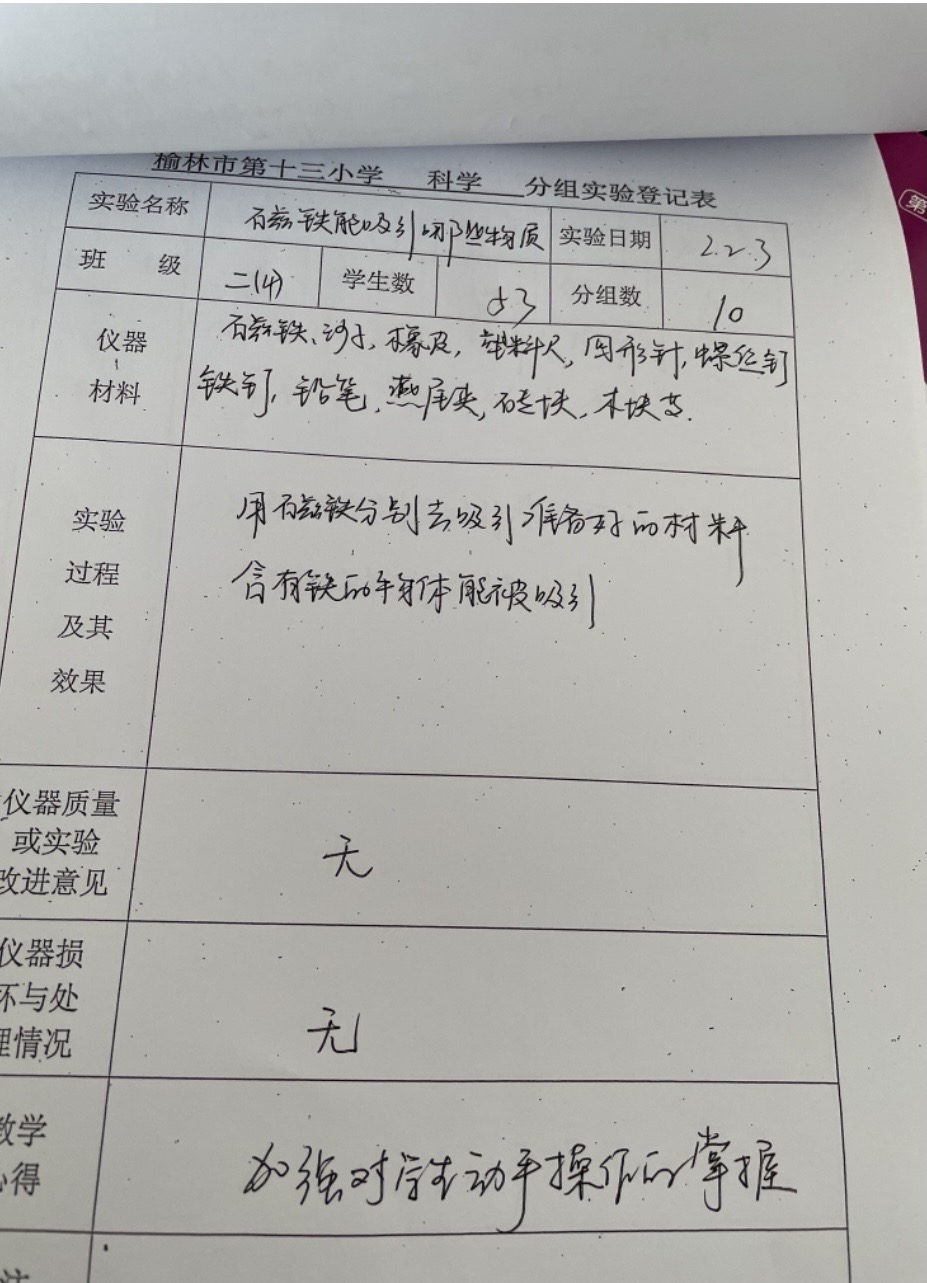 榆林市第十三小学 科学 分组实验登记表
实验名称 磁铁能吸引哪些物质 实验日期 2.23
班 级 二(4) 学生数 53 分组数 10
仪器 材料 磁铁、沙子、橡皮，塑料尺，回形针，螺丝钉
铁钉，铅笔、燕尾夹，砖块、木块等.
实验
过程
及其
效果
用磁铁分别去吸引准备好的材料
含有铁的物体能被吸引
仪器质量
或实验
改进意见
无
仪器损
坏与处
理情况
无
教学
心得
加强对学生动手操作的掌握